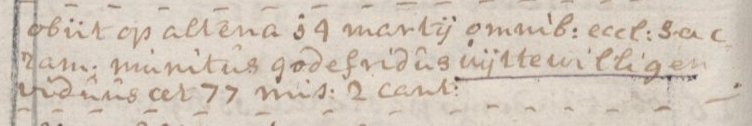 obiit op altena 14 martij omnib: eccl: sac
ram. munitûs godefridûs uijttewilligen
vidûûs aet 77 mis: 2 cant: